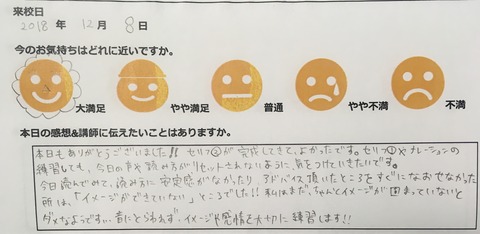 来校日
2018 年 12 月 8 日
今のお気持ちはどれに近いですか。
大満足 やや満足 普通 やや不満 不満
本日の感想&講師に伝えたいことはありますか。
本日もありがとうございました!! セリフ②が完成してきて、よかったです。セリフ①やナレーションの
練習しても、今日の声や読み方がリセットされないように、気をつけていきたいです。
今日読んでみて、読み方に安定感がなかったり、アドバイス頂いたところをすぐになおせなかった
所は、「イメージができていない」ところでした!! 私はまだ、ちゃんとイメージが固まっていないと
ダメなようです…。音にとらわれず、イメージや感情を大切に練習します!!